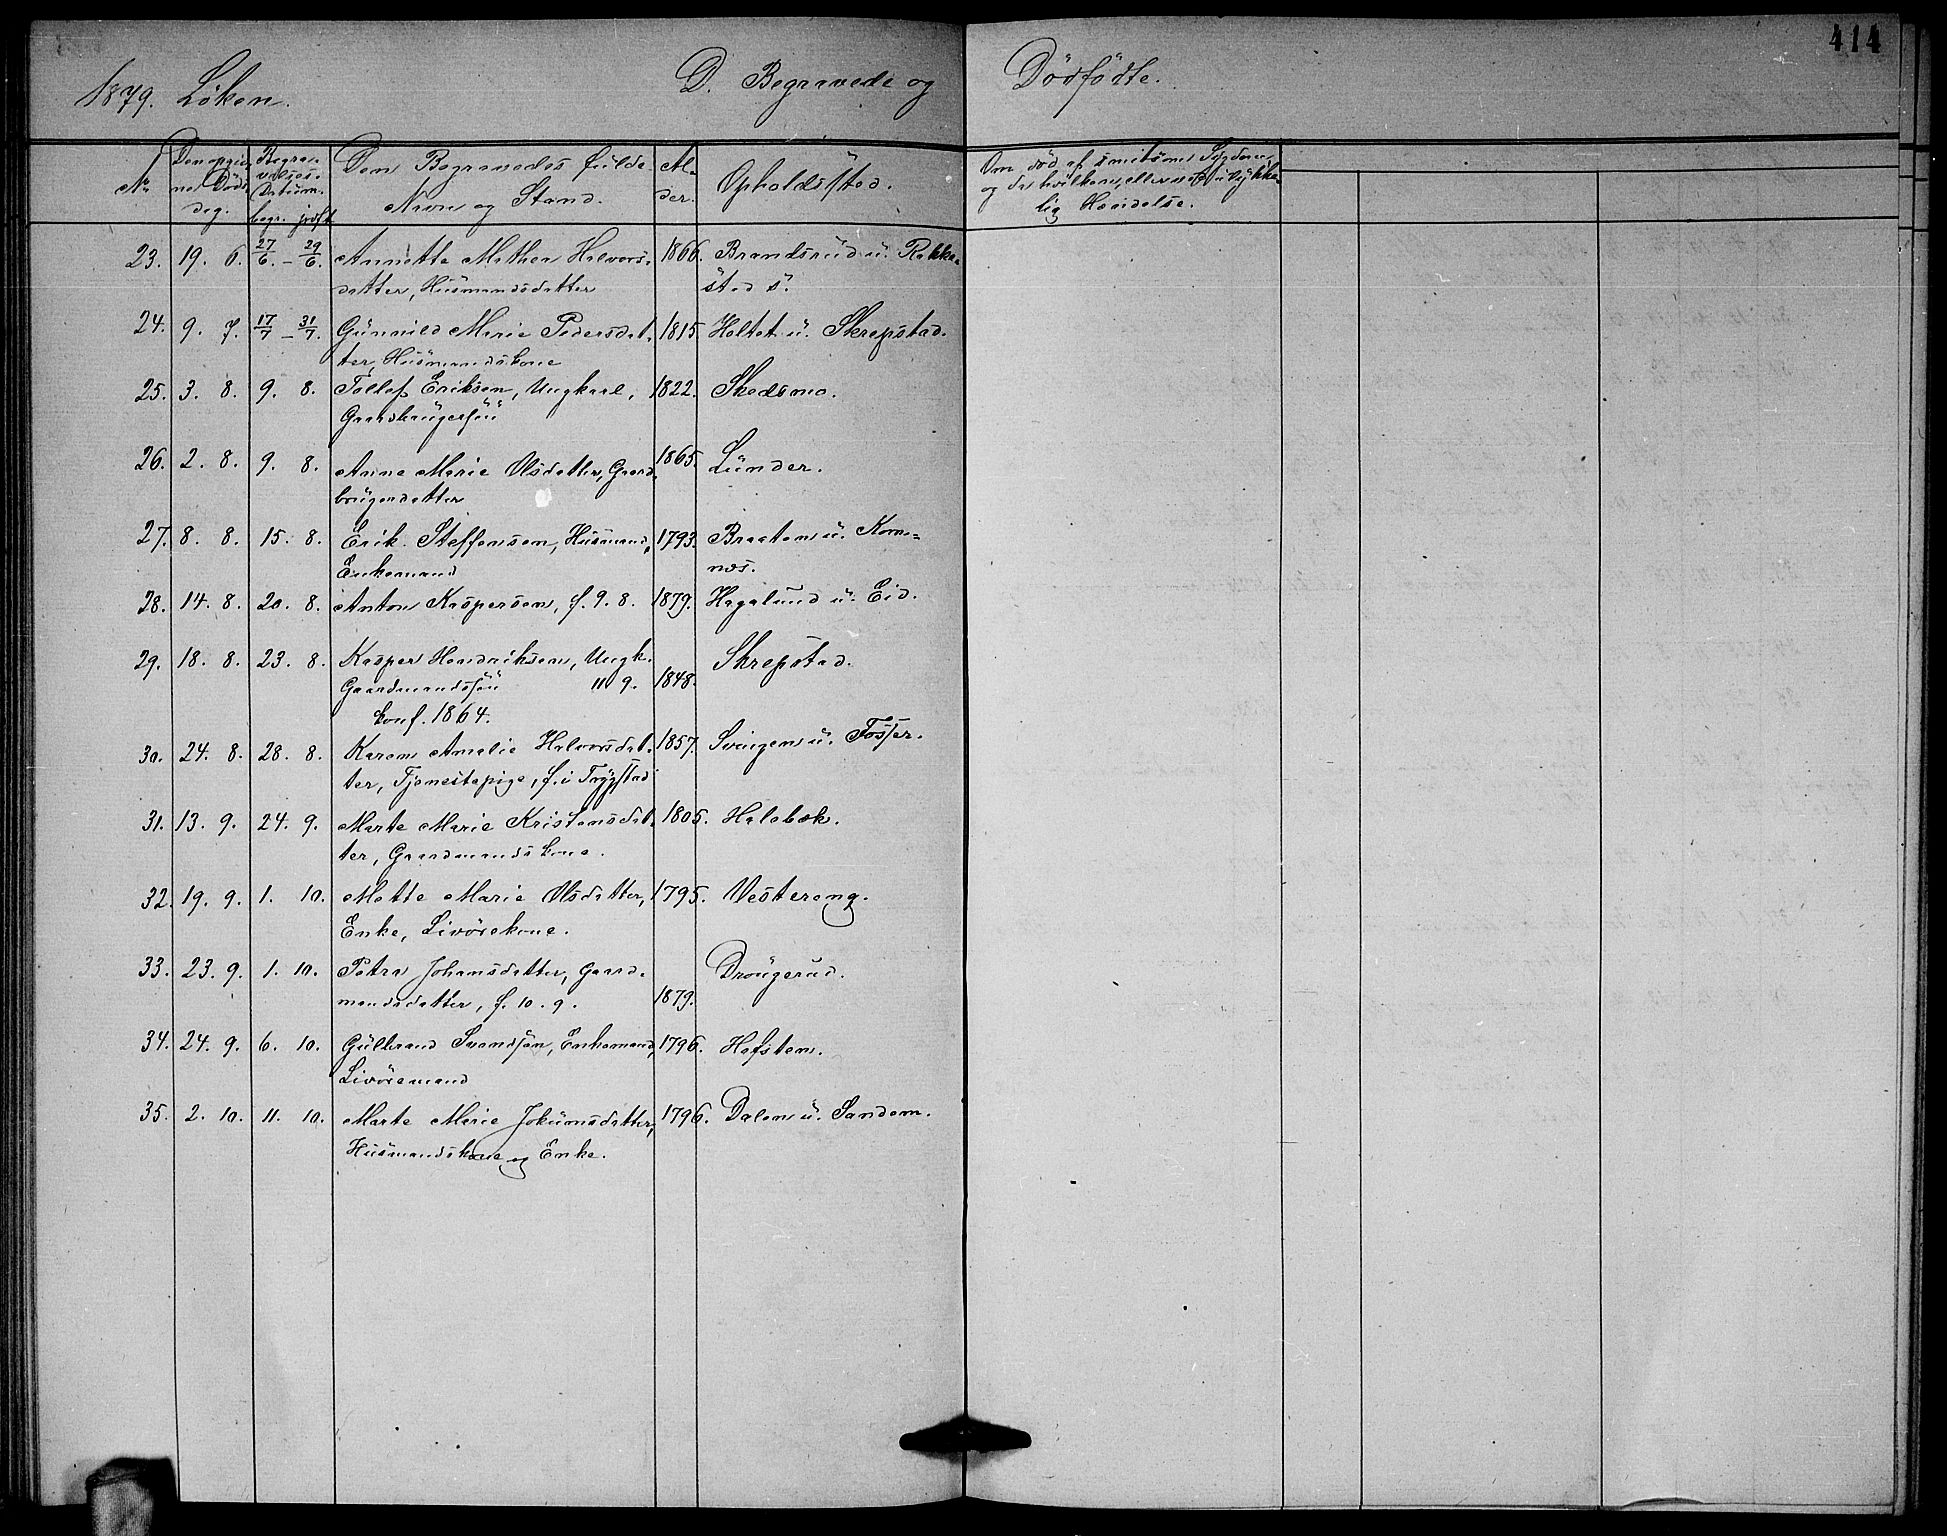 414
1879. Løken. D. Begravede og Dødfødte.
No. Den opgivne Døds dag. Begravelses Datum. begr. jordf. Den Begravedes fulde Navn og Stand. Alder. Opholdssted. Om død af smitsom Sygdom, og da hvilken, eller ved ulykkelig Hændelse.
23. 19. 6. 27/6. – 29/6. Annette Mathea Halvors- 1866. Brandsrud u. Rakke-
datter, Husmandsdatter stad s.
24. 9. 7. 17/7 – 31/7. Gunnild Marie Pedersdat- 1815 Holtet u. Skrepstad.
ter, Husmandskone
25. 3. 8. 9. 8. Tollef Eriksen, Ungkarl, 1822. Skedsmo.
Gaardbrugersøn
26. 2. 8. 9. 8. Anne Marie Olsdatter, Gaard- 1865. Lunder.
brugerdatter
27. 8. 8. 15. 8. Erik Steffensen, Husmand, 1793. Braaten u. Korne-
Enkemand næs.
28. 14. 8. 20. 8. Anton Kaspersen, f. 9. 8. 1879. Hagalund u. Eid.
29. 18. 8. 23. 8. Kasper Hendriksen, Ungk. Skrepstad.
Gaardmandssøn 11 9. 1848.
konf. 1864.
30. 24. 8. 28. 8. Karen Amalie Halvorsdat- 1857. Svingen u. Fosser.
ter, Tjenestepige, f. i Trygstad
31. 13. 9. 24. 9. Marte Marie Kristensdat- 1805. Halebæk.
ter, Gaardmandskone.
32. 19. 9. 1. 10. Mette Marie Olsdatter, 1795. Vestereng.
Enke, Livørekone.
33. 23. 9. 1. 10. Petra Johansdatter, Gaard- Drougerud.
mandsdatter, f. 10. 9. 1879.
34. 24. 9. 6. 10. Gulbrand Svendsøn, Enkemand, 1796. Hofsten.
Livøremand
35. 2. 10. 11. 10. Marte Marie Jokumsdatter, 1796. Dalen u. Sandem.
Husmandskone og Enke.